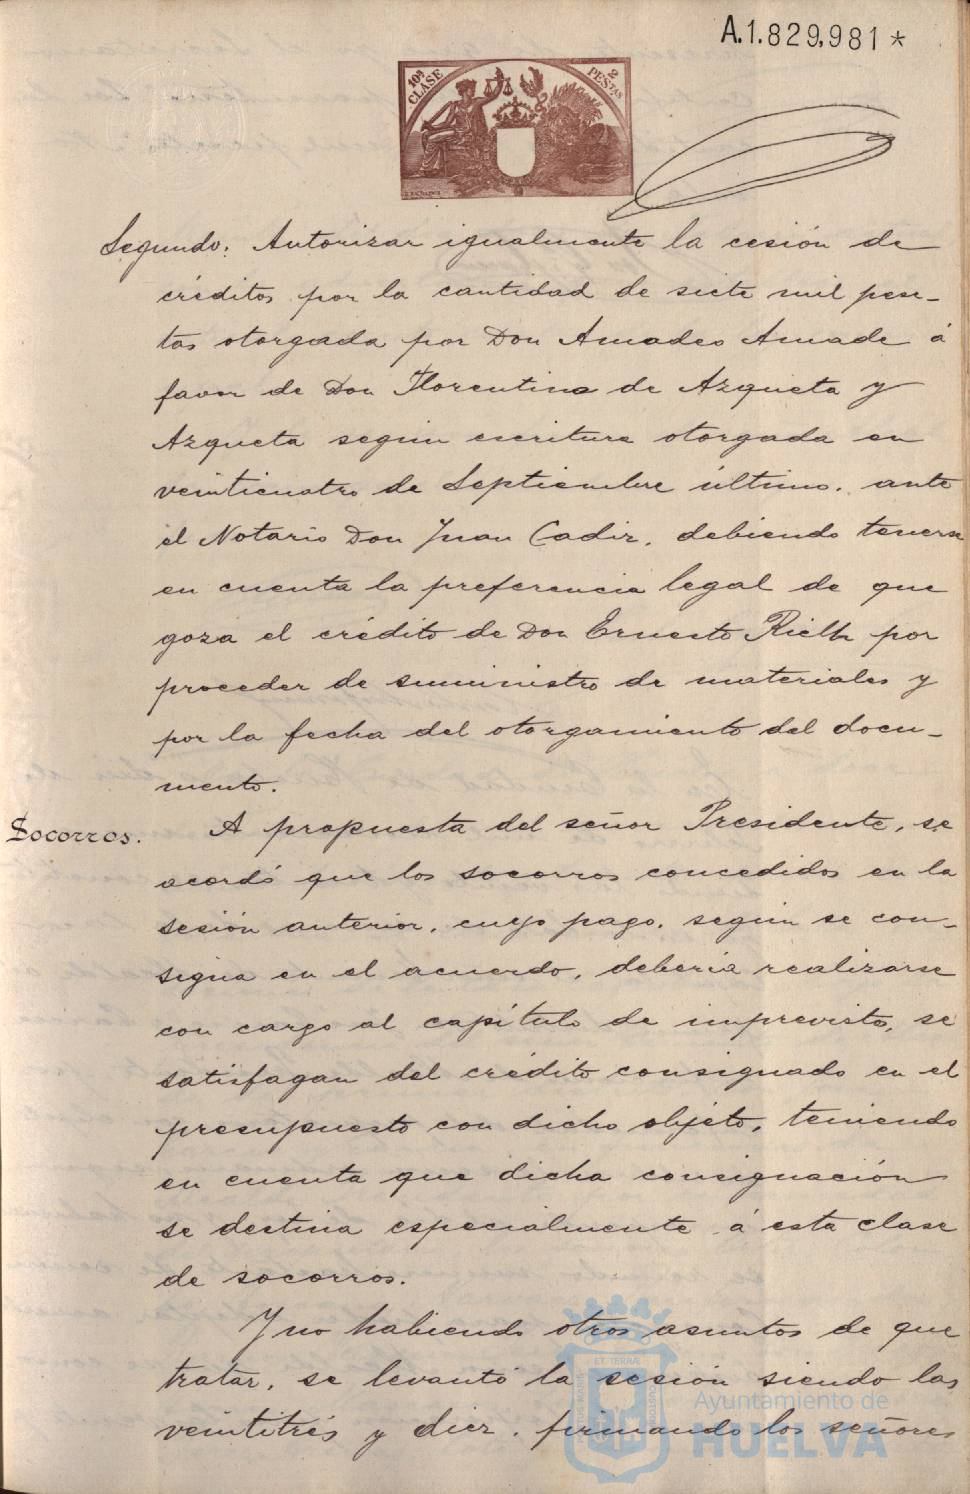 A.1.829,981 *
10ª CLASE
2 PESTAS
Segundo: Autorizar igualmente la cesión de
créditos por la cantidad de siete mil pese-
tas otorgada por Don Amadeo Amade á
favor de Don Florentino de Azqueta y
Azqueta según escritura otorgada en
veinticuatro de Septiembre último, ante
el Notario Don Juan Cadir, debiendo tenerse
en cuenta la preferencia legal de que
goza el crédito de Don Ernesto Rieth por
proceder de suministro de materiales y
por la fecha del otorgamiento del docu-
mento.
Socorros.
A propuesta del señor Presidente, se
acordó que los socorros concedidos en la
sesión anterior, cuyo pago, según se con-
signa en el acuerdo, debería realizarse
con cargo al capítulo de imprevistos, se
satisfagan del crédito consignado en el
presupuesto con dicho objeto, teniendo
en cuenta que dicha consignación
se destina especialmente á esta clase
de socorros.
Y no habiendo otros asuntos de que
tratar, se levantó la sesión siendo las
veintitrés y diez, firmando los señores
Ayuntamiento de
HUELVA